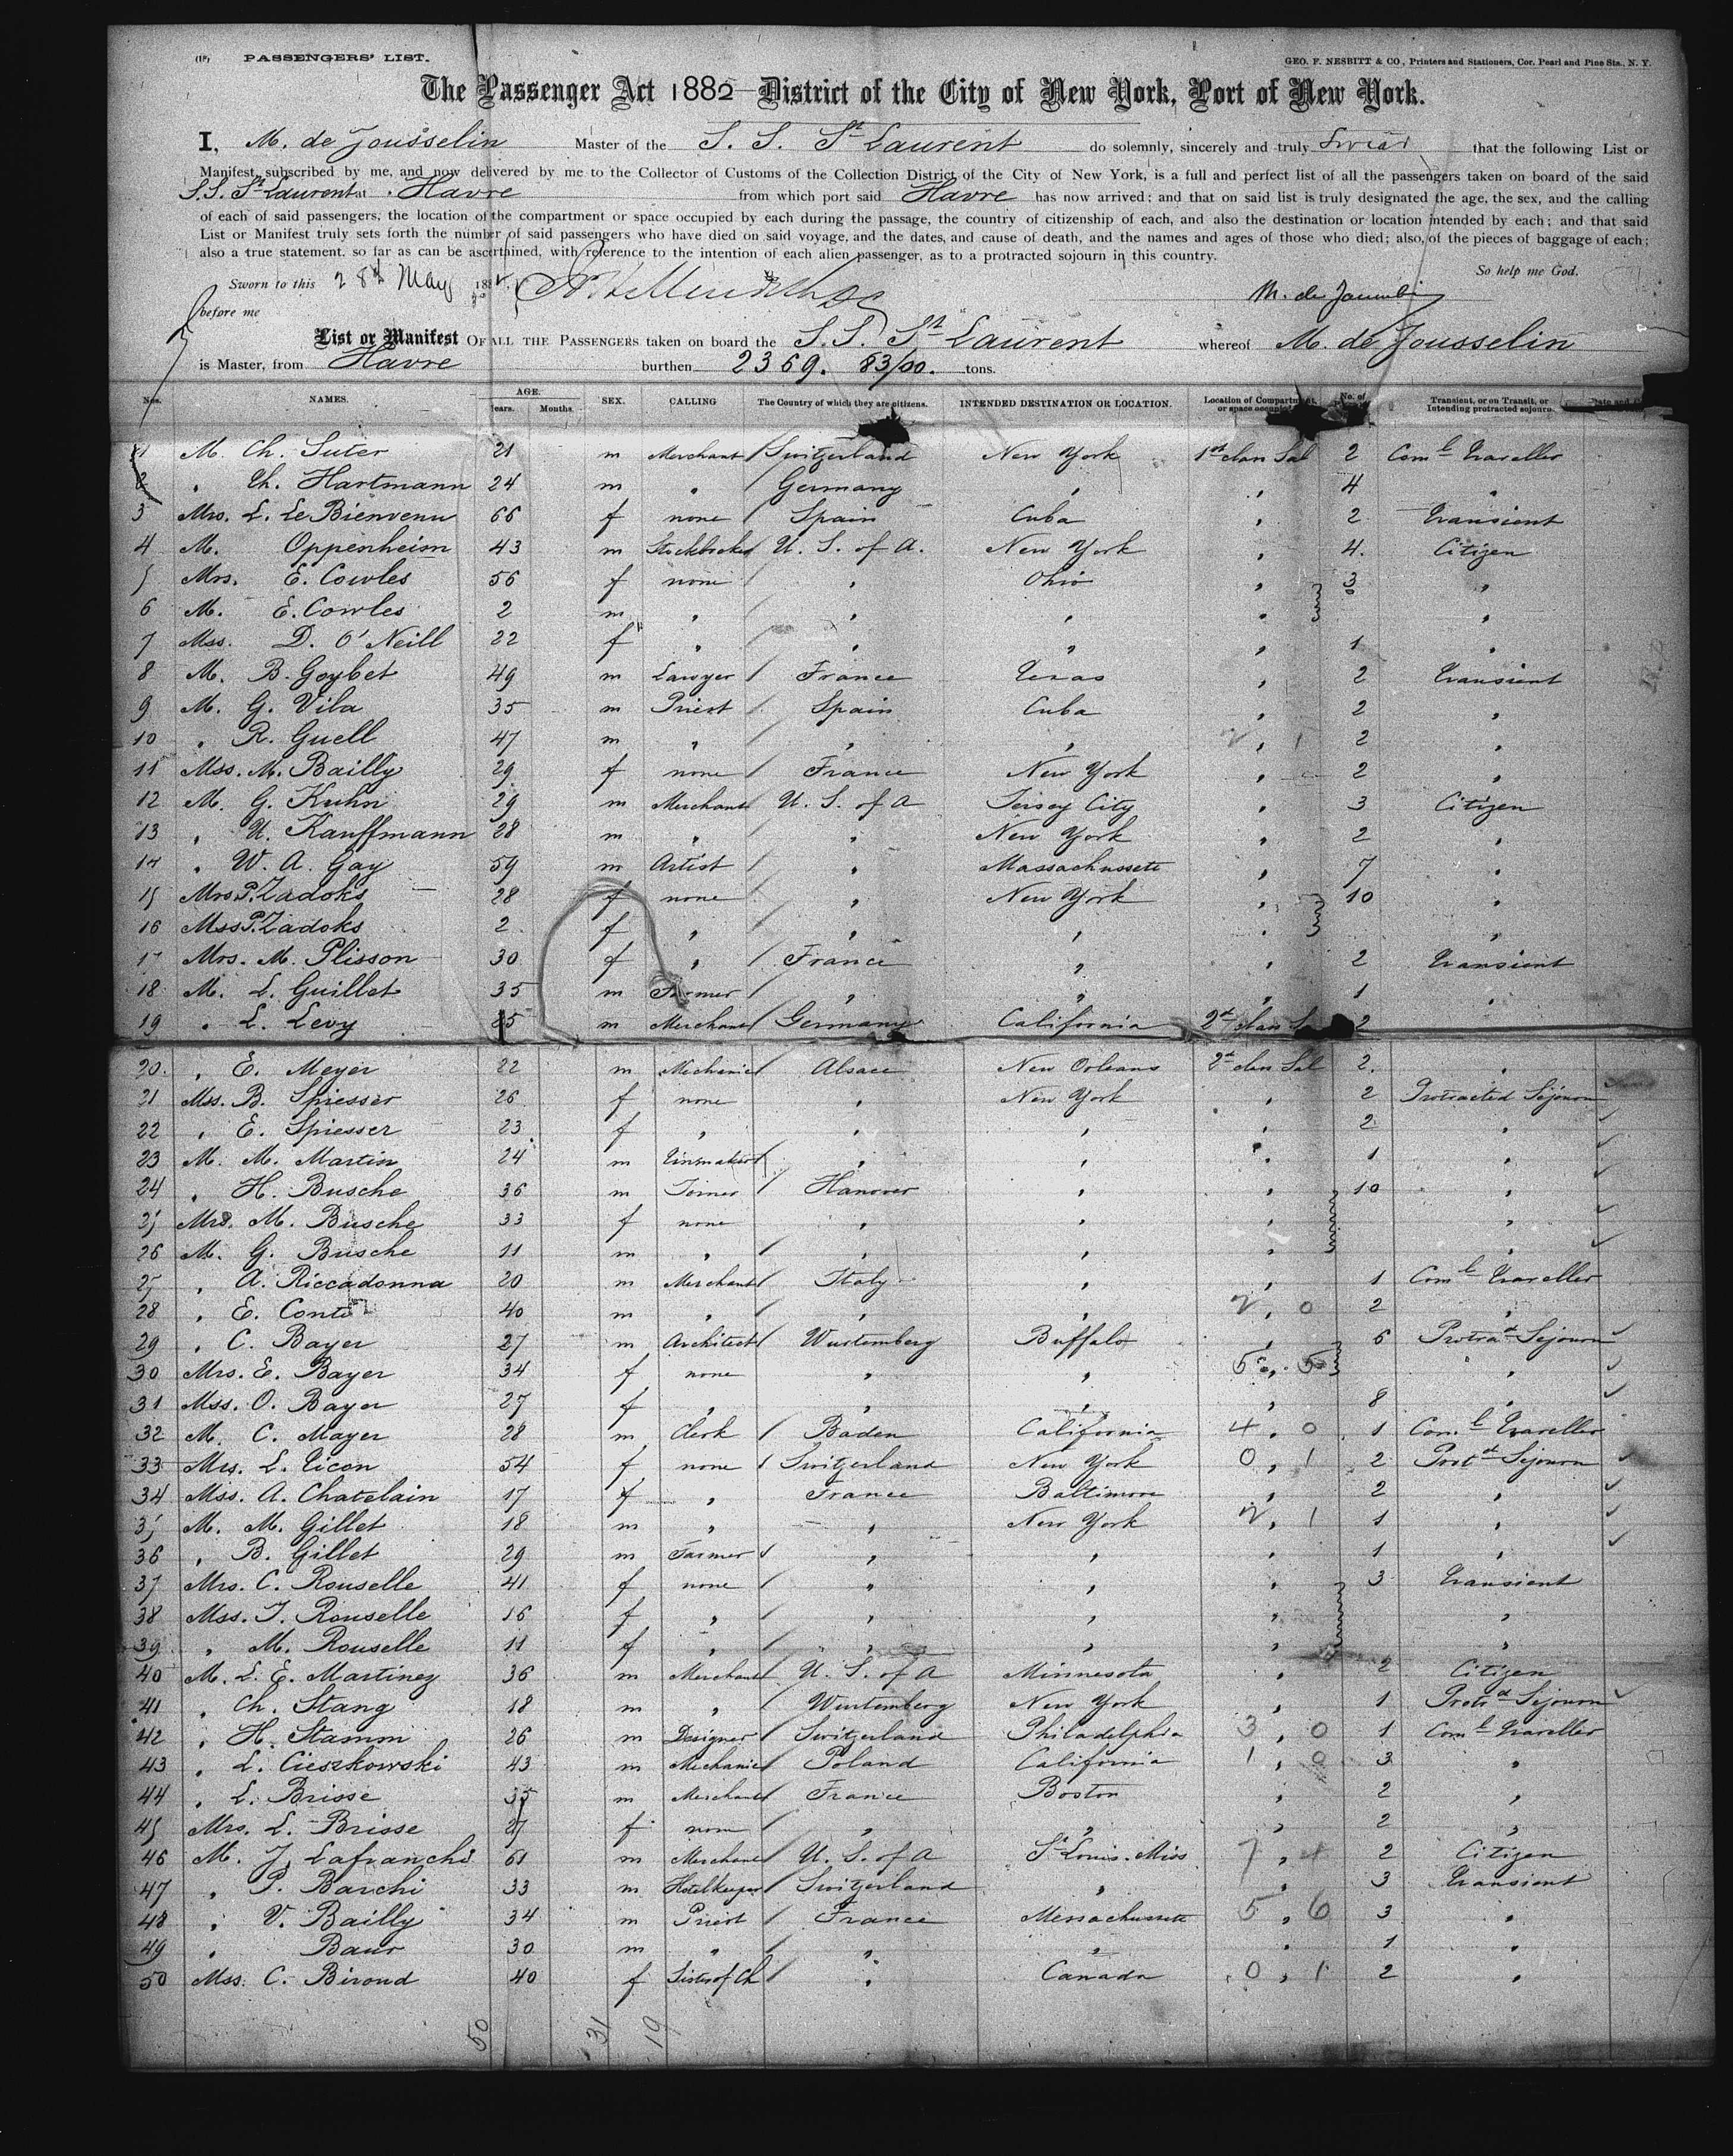 (18) PASSENGERS' LIST.
GEO. F. NESBITT & CO., Printers and Stationers, Cor. Pearl and Pine Sts., N. Y.
The Passenger Act 1882 District of the City of New York, Port of New York.
I, M. de Jousselin Master of the S. S. St Laurent do solemnly, sincerely and truly Swear that the following List or
Manifest, subscribed by me, and now delivered by me to the Collector of Customs of the Collection District of the City of New York, is a full and perfect list of all the passengers taken on board of the said
S.S. St Laurent at Havre from which port said Havre has now arrived; and that on said list is truly designated the age, the sex, and the calling
of each of said passengers, the location of the compartment or space occupied by each during the passage, the country of citizenship of each, and also the destination or location intended by each; and that said
List or Manifest truly sets forth the number of said passengers who have died on said voyage, and the dates, and cause of death, and the names and ages of those who died; also, of the pieces of baggage of each;
also a true statement, so far as can be ascertained, with reference to the intention of each alien passenger, as to a protracted sojourn in this country.
So help me God.
Sworn to this 28th May 188
before me
List or Manifest OF ALL THE PASSENGERS taken on board the S.S. St Laurent whereof M. de Jousselin
is Master, from Havre burthen 2369. 83/00. tons.
Nos. NAMES. AGE. Years. Months. SEX. CALLING The Country of which they are citizens. INTENDED DESTINATION OR LOCATION. Location of Compartment or space occupied No. of Transient, or on Transit, or Intending protracted sojourn. Date and
1 M. Ch. Suter 21 m Merchant Switzerland New York 1st class Sal 2 Coml Traveller
2 " Ch. Hartmann 24 m " Germany " " 4 "
3 Mrs. L. Le Bienvenu 66 f none Spain Cuba " 2 Transient
4 M. Oppenheim 43 m Stockbroker U. S. of A. New York " 4. Citizen
5 Mrs. E. Cowles 56 f none " Ohio " 3 "
6 M. E. Cowles 2 m " " " " "
7 Mss. D. O'Neill 22 f " " " " 1 "
8 M. B. Goybet 49 m Lawyer France Texas " 2 Transient
9 M. G. Vila 35 m Priest Spain Cuba " 2 "
10 " R. Guell 47 m " " " 2 , 1 2 "
11 Mss. M. Bailly 29 f none France New York " 2 "
12 M. G. Kuhn 29 m Merchant U. S. of A Jersey City " 3 Citizen
13 " U. Kauffmann 28 m " " New York " 2 "
14 " W. A. Gay 59 m Artist " Massachussets " 7 "
15 Mrs P. Zadoks 28 f none " New York " 10 "
16 Mss P. Zadoks 2 f " " " " "
17 Mrs. M. Plisson 30 f " France " " 2 Transient
18 M. L. Guillet 35 m Farmer " " " 1 "
19 " L. Levy 25 m Merchant Germany California 2d class 2
20. " E. Meyer 22 m Mechanic Alsace New Orleans 2d class Sal 2. "
21 Mss. B. Spiesser 26 f none " New York " 2 Protracted Sejourn
22 " E. Spiesser 23 f " " " " 2 "
23 M. M. Martin 24 m " " " 1 "
24 " H. Busche 36 m Joiner Hanover " " 10 "
25 Mrs. M. Busche 33 f none " " " "
26 M. G. Busche 11 m " " " " "
27 " A. Riccadonna 20 m Merchant Italy " " 1 Coml Traveller
28 " E. Conte 40 m " " " 2 , 0 2 "
29 " C. Bayer 27 m Architect Wurtemberg Buffalo " 6 Protrad Sejourn
30 Mrs. E. Bayer 34 f none " " 5 , 5 "
31 Mss. O. Bayer 27 f " " " " 8 "
32 M. C. Mayer 28 m Clerk Baden California 4 , 0 1 Coml Traveller
33 Mrs. L. Ticon 54 f none Switzerland New York 0 , 1 2 Protd Sejourn
34 Mss. A. Chatelain 17 f " France Baltimore " 2 "
35 M. M. Gillet 18 m " " New York 2 , 1 1 "
36 " B. Gillet 29 m Farmer " " " 1 "
37 Mrs. C. Rouselle 41 f none " " " 3 Transient
38 Mss. J. Rouselle 16 f " " " " "
39 " M. Rouselle 11 f " " " " "
40 M. L. E. Martinez 36 m Merchant U. S. of A Minnesota " 2 Citizen
41 " Ch. Stang 18 m " Wurtemberg New York " 1 Protrd Sejourn
42 " H. Stamm 26 m Designer Switzerland Philadelphia 3 , 0 1 Coml Traveller
43 " L. Cieszkowski 43 m Mechanic Poland California 1 , 0 3 "
44 " L. Brisse 35 m Merchant France Boston " 2 "
45 Mrs. L. Brisse 27 f none " " " 2 "
46 M. J. Lafranchi 61 m Merchant U. S. of A St Louis. Miss 7 , 4 2 Citizen
47 " P. Barchi 33 m Hotelkeeper Switzerland " " 3 Transient
48 " V. Bailly 34 m Priest France Messachussets 5 , 6 3 "
49 " Baur 30 m " " " " 1 "
50 Mss. C. Biroud 40 f Sister of Ch " Canada 0 , 1 2 "
50 31 19